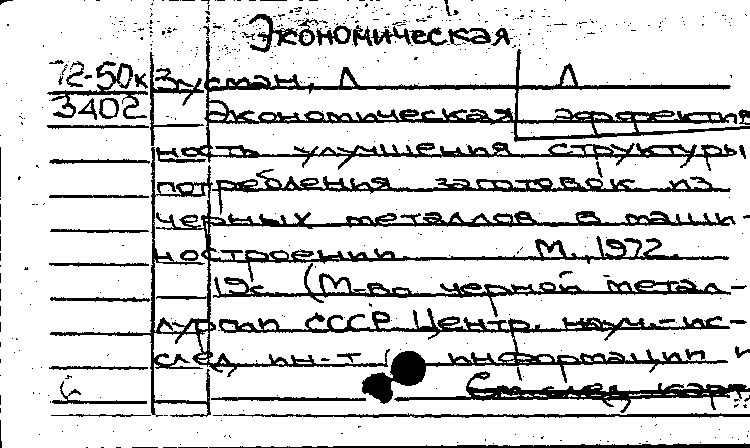 Экономическая
72-50к Зусман, Л Л
3402 Экономическая эффектив
ность улучшения структуры
потребления заготовок из
черных металлов в маши-
ностроении. М., 1972.
19с (М-во черной метал-
лургии СССР Центр. науч.-ис-
след, ин-т информации и
6 См след карт